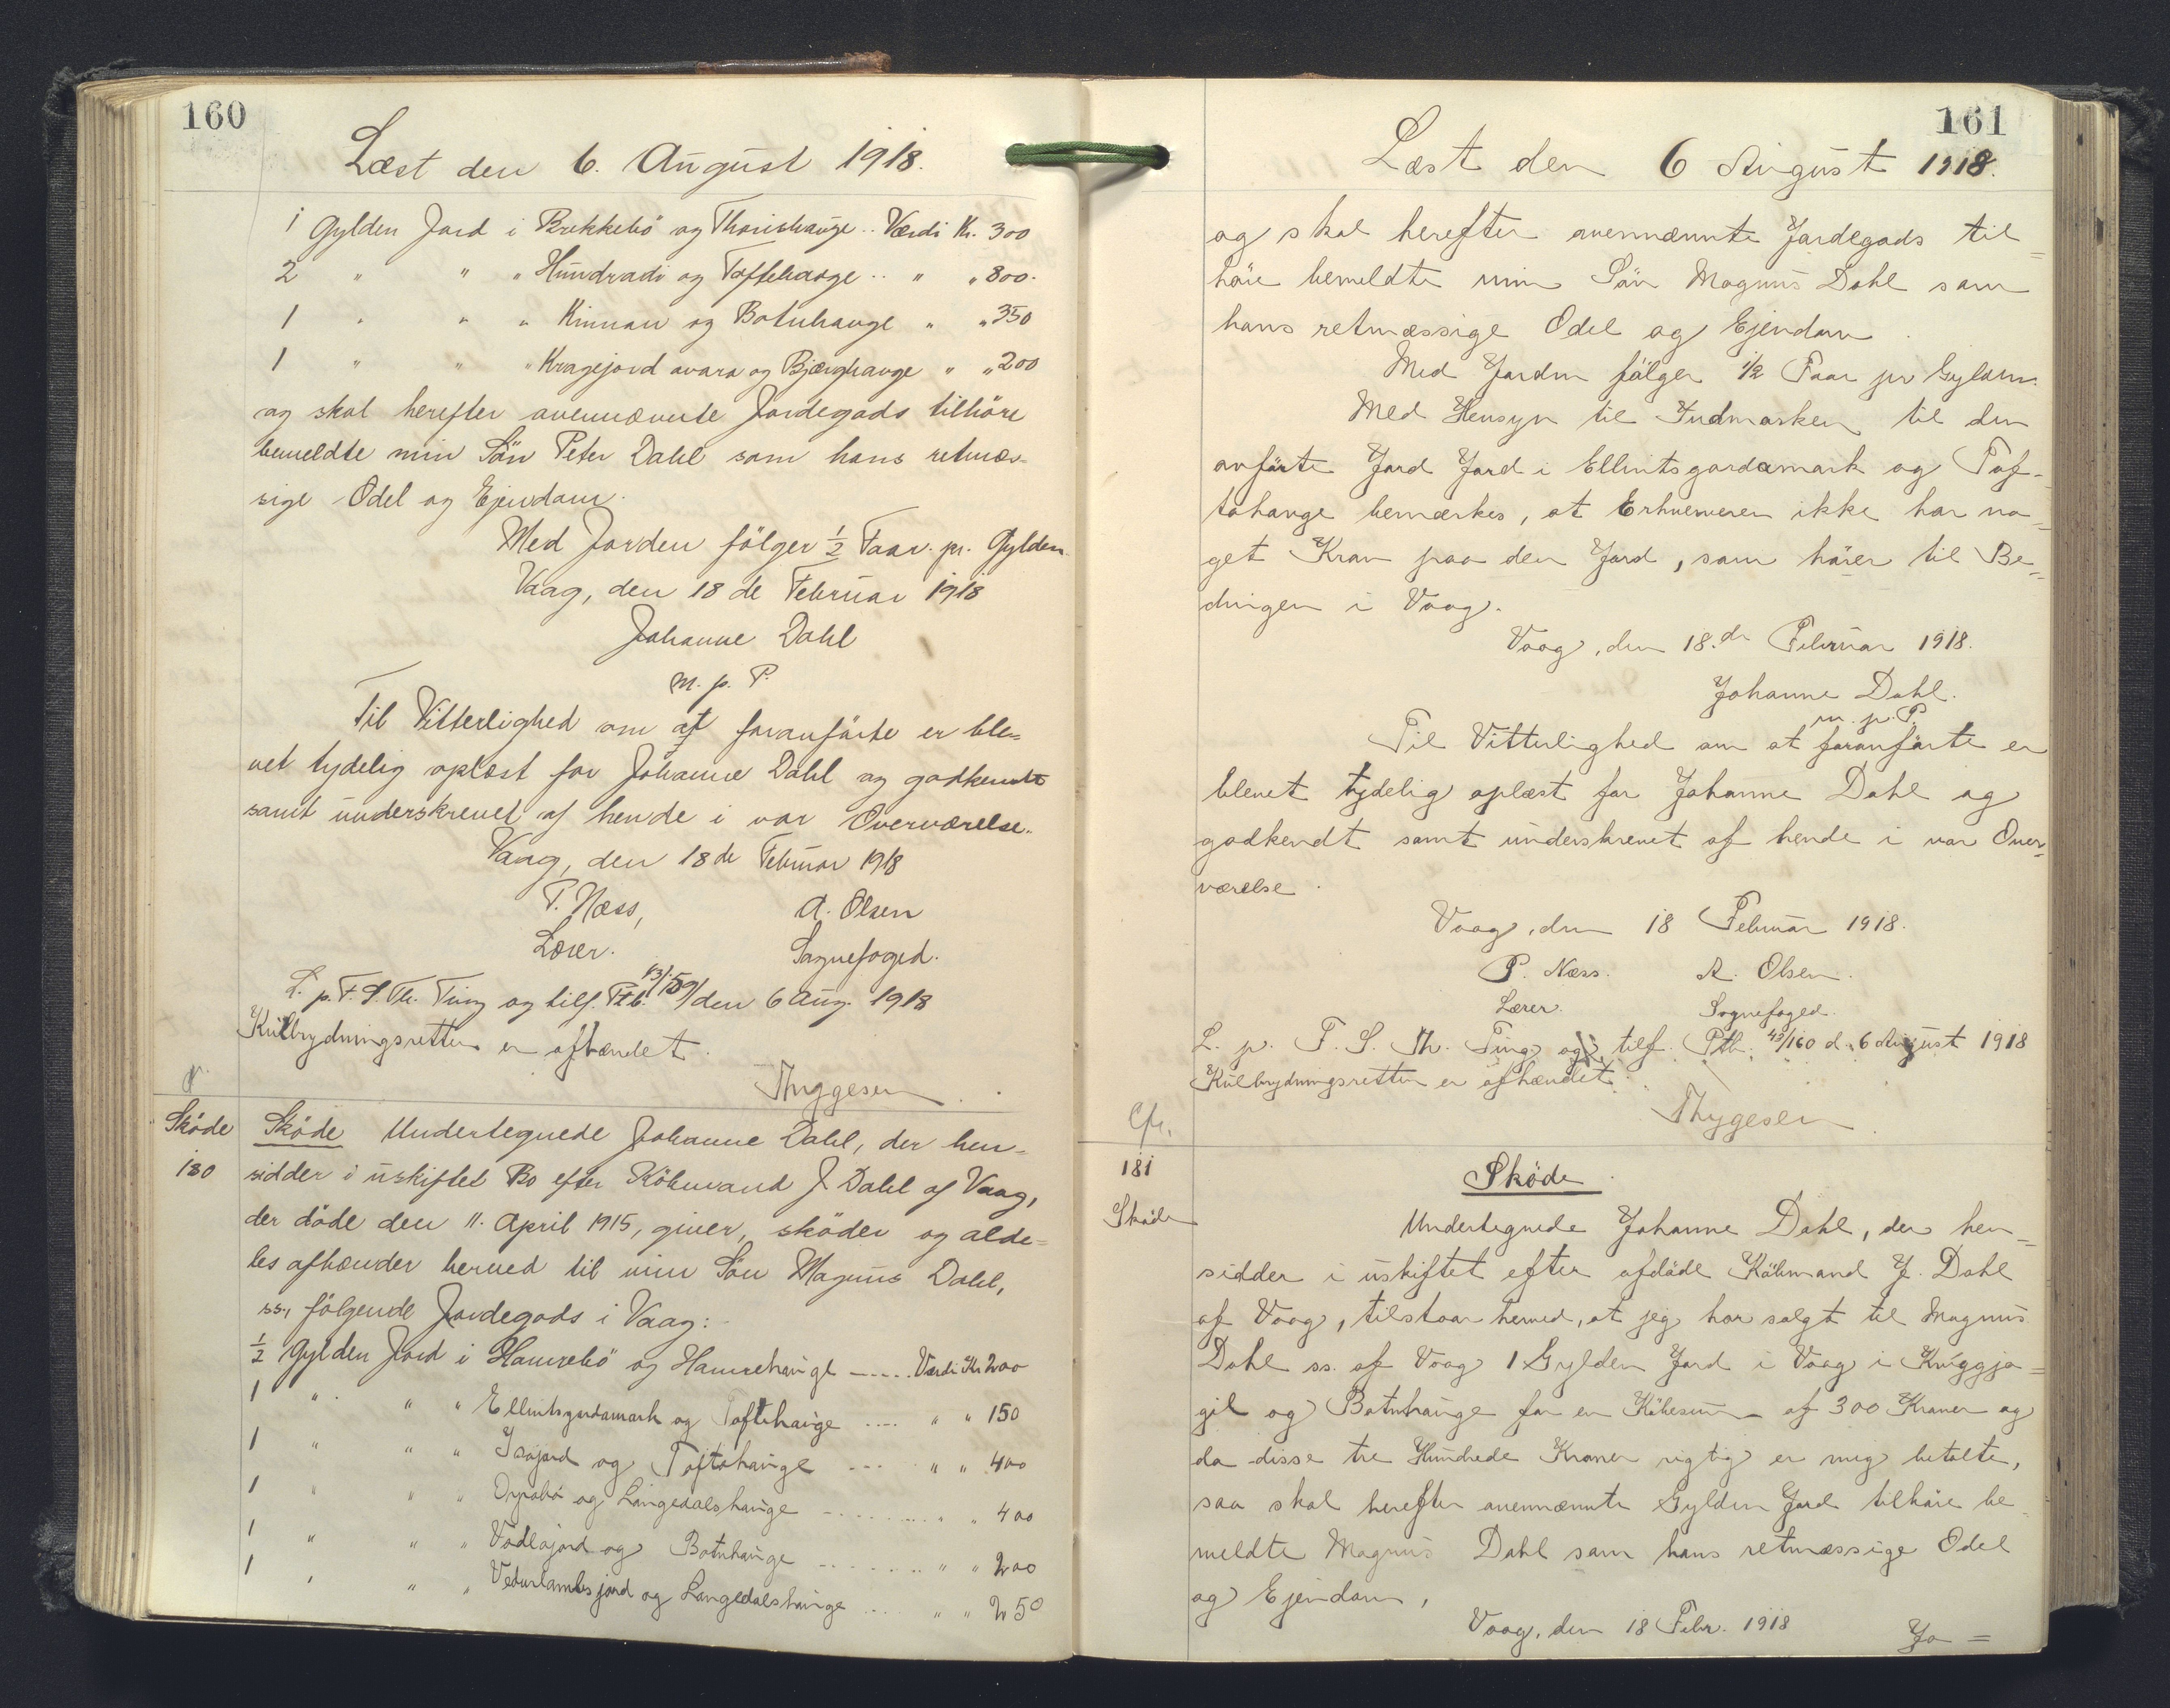 160
Læst den 6. August 1918.
1 Gylden Jord i Brekkebö og Thorishauge .. Værdi Kr. 300
2 " " " Hundradi og Toftehauge .. " " 800.
1 " " " Kinnan og Botnhauge " " 350
1 " " " Kragejord avara og Bjærghauge " " 200
og skal herefter ovennævnte Jordegods tilhöre
bemeldte min Sön Peter Dahl som hans retmæs-
sige Odel og Ejendom.
Med Jorden fölger ½ Faar pr. Gylden
Vaag, den 18 de Februar 1918
Johanne Dahl
m. p. P.
Til Vitterlighed om at foranförte er ble-
vet tydelig oplæst for Johanne Dahl og godkendt
samt underskrevet af hende i vor Overværelse.
Vaag, den 18 de Februar 1918
P. Næss, A. Olsen
Lærer. Sognefoged.
L. p. F. S. Th. Ting og tilf. Ptb. 43/159/ den 6 Aug. 1918
Kulbrydningsretten er afhændet.
Thygesen
Sköde Sköde Undertegnede Johanne Dahl, der hen-
180 sidder i uskiftet Bo efter Köbmand J Dahl af Vaag,
der döde den 11. April 1915, giver, sköder og alde-
les afhænder herved til min Sön Magnus Dahl,
ss., fölgende Jordegods i Vaag:
½ Gylden Jord i Hamrebö og Hamrehauge ---... Værdi Kr 200
1 " " " Ellintsgardamark og Toftehauge .... " " 150
1 " " " Isajord og Toftahauge --- " " 400
1 " " " Dyrabö og Langedalshauge -...... " " 400
1 " " " Vadlajord og Botnhauge -...... " " 200
1 " " " Vedurlambsjord og Langedalshauge .... " " 250
161
Læst den 6 August 1918.
og skal herefter ovennævnte Jordegods til=
höre bemeldte min Sön Magnus Dahl som
hans retmæssige Odel og Ejendom.
Med Jorden fölger 1/2 Faar pr Gylden.
Med Hensyn til Indmarken til den
anförte Jord Jord i Ellintsgardamark og Tof-
tahauge bemærkes, at Erhververen ikke har no=
get Krav paa den Jord, som hörer til Be=
dingen i Vaag.
Vaag, den 18.de Februar 1918.
Johanne Dahl.
m. p. P.
Til Vitterlighed om at foranförte er
blevet tydelig oplæst for Johanne Dahl og
godkendt samt underskrevet af hende i vor Over=
værelse.
Vaag, den 18 Februar 1918.
P. Næss. A. Olsen.
Lærer. Sognefoged.
L. p. F. S. Th. Ting og tilf. Ptb. 43/160 d. 6 August 1918
Kulbrydningsretten er afhændet.
Thygesen
Cfr.
181 Sköde.
Sköde Undertegnede Johanne Dahl, der hen=
sidder i uskiftet efter afdöde Köbmand J. Dahl
af Vaag, tilstaar herved, at jeg har solgt til Magnus
Dahl ss. af Vaag 1 Gylden Jord i Vaag i Kniggja=
gil og Botnhauge for en Köbesum af 300 Kroner og
da disse tre Hundrede Kroner rigtig er mig betalte,
saa skal herefter ovennævnte Gylden Jord tilhöre be
meldte Magnus Dahl som hans retmæssige Odel
og Ejendom,
Vaag, den 18 Febr. 1918
Jo =